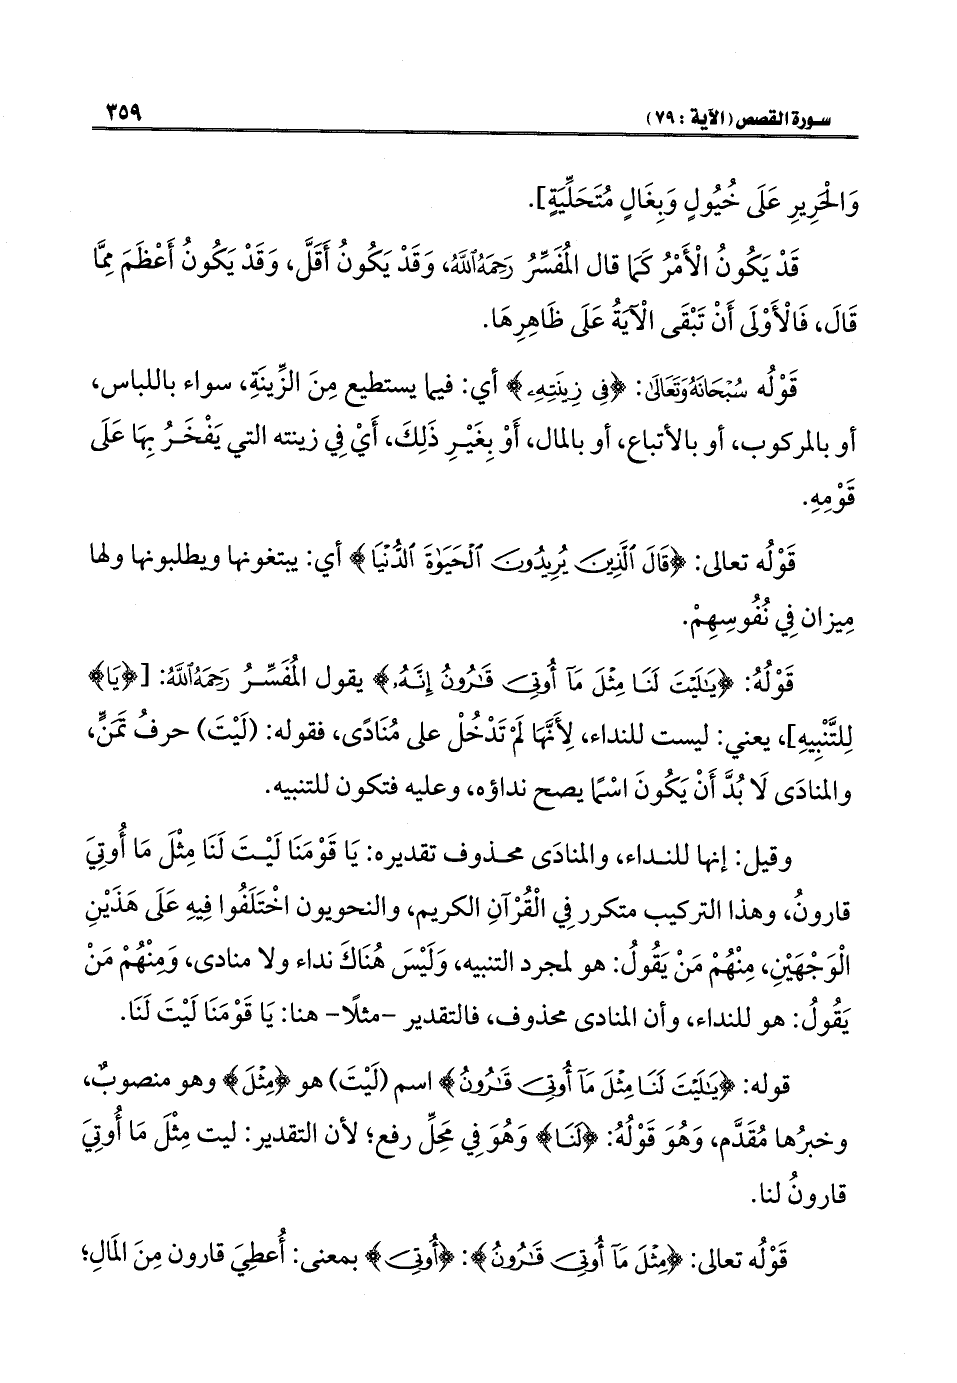 سورة القصص (الآية : ٧٩)
٣٥٩
وَالْحَرِيرِ عَلَى خُيُولٍ وَبِغَالٍ مُتَحَلِّيَةٍ].
قَدْ يَكُونُ الْأَمْرُ كَمَا قال الْمُفَسِّرُ رَحِمَهُ اللَّهُ، وَقَدْ يَكُونُ أَقَلَّ، وَقَدْ يَكُونُ أَعْظَمَ مِمَّا
قَالَ، فَالْأَوْلَى أَنْ تَبْقَى الْآيَةُ عَلَى ظَاهِرِهَا.
قَوْلُه سُبْحَانَهُ وَتَعَالَى: ﴿فِى زِينَتِهِۦ﴾ أي: فيما يستطيع مِنَ الزِّينَةِ، سواء باللباس،
أو بالمركوب، أو بالأتباع، أو بالمال، أَوْ بِغَيْرِ ذَلِكَ، أَيْ فِي زينته التي يَفْخَرُ بِهَا عَلَى
قَوْمِهِ.
قَوْلُه تعالى: ﴿قَالَ ٱلَّذِينَ يُرِيدُونَ ٱلْحَيَوٰةَ ٱلدُّنْيَا﴾ أي: يبتغونها ويطلبونها ولها
مِيزان فِي نُفُوسِهِمْ.
قَوْلُهُ: ﴿يَـٰلَيْتَ لَنَا مِثْلَ مَآ أُوتِىَ قَـٰرُونُ إِنَّهُۥ﴾ يقول الْمُفَسِّرُ رَحِمَهُ اللَّهُ: [﴿يَا﴾
لِلتَّنْبِيهِ]، يعني: ليست للنداء، لِأَنَّهَا لَمْ تَدْخُلْ على مُنَادًى، فقوله: (لَيْتَ) حرفُ تَمَنٍّ،
والمنادَى لَا بُدَّ أَنْ يَكُونَ اسْمًا يصح نداؤه، وعليه فتكون للتنبيه.
وقيل: إنها للنداء، والمنادَى محذوف تقديره: يَا قَوْمَنَا لَيْتَ لَنَا مِثْلَ مَا أُوتِيَ
قارونُ، وهذا التركيب متكرر فِي الْقُرْآنِ الكريم، والنحويون اخْتَلَفُوا فِيهِ عَلَى هَذَيْنِ
الْوَجْهَيْنِ، مِنْهُمْ مَنْ يَقُولُ: هو لمجرد التنبيه، وَلَيْسَ هُنَاكَ نداء ولا منادى، وَمِنْهُمْ مَنْ
يَقُولُ: هو للنداء، وأن المنادى محذوف، فالتقدير -مثلًا- هنا: يَا قَوْمَنَا لَيْتَ لَنَا.
قوله: ﴿يَـٰلَيْتَ لَنَا مِثْلَ مَآ أُوتِىَ قَـٰرُونُ﴾ اسم (لَيْتَ) هو ﴿مِثْلَ﴾ وهو منصوبٌ،
وخبرُها مُقَدَّم، وَهُوَ قَوْلُهُ: ﴿لَنَا﴾ وَهُوَ فِي مَحِلِّ رفع؛ لأن التقدير: ليت مِثْلَ مَا أُوتِيَ
قارونُ لنا.
قَوْلُه تعالى: ﴿مِثْلَ مَآ أُوتِىَ قَـٰرُونُ﴾: ﴿أُوتِىَ﴾ بمعنى: أُعطِيَ قارون مِنَ الْمَالِ؛